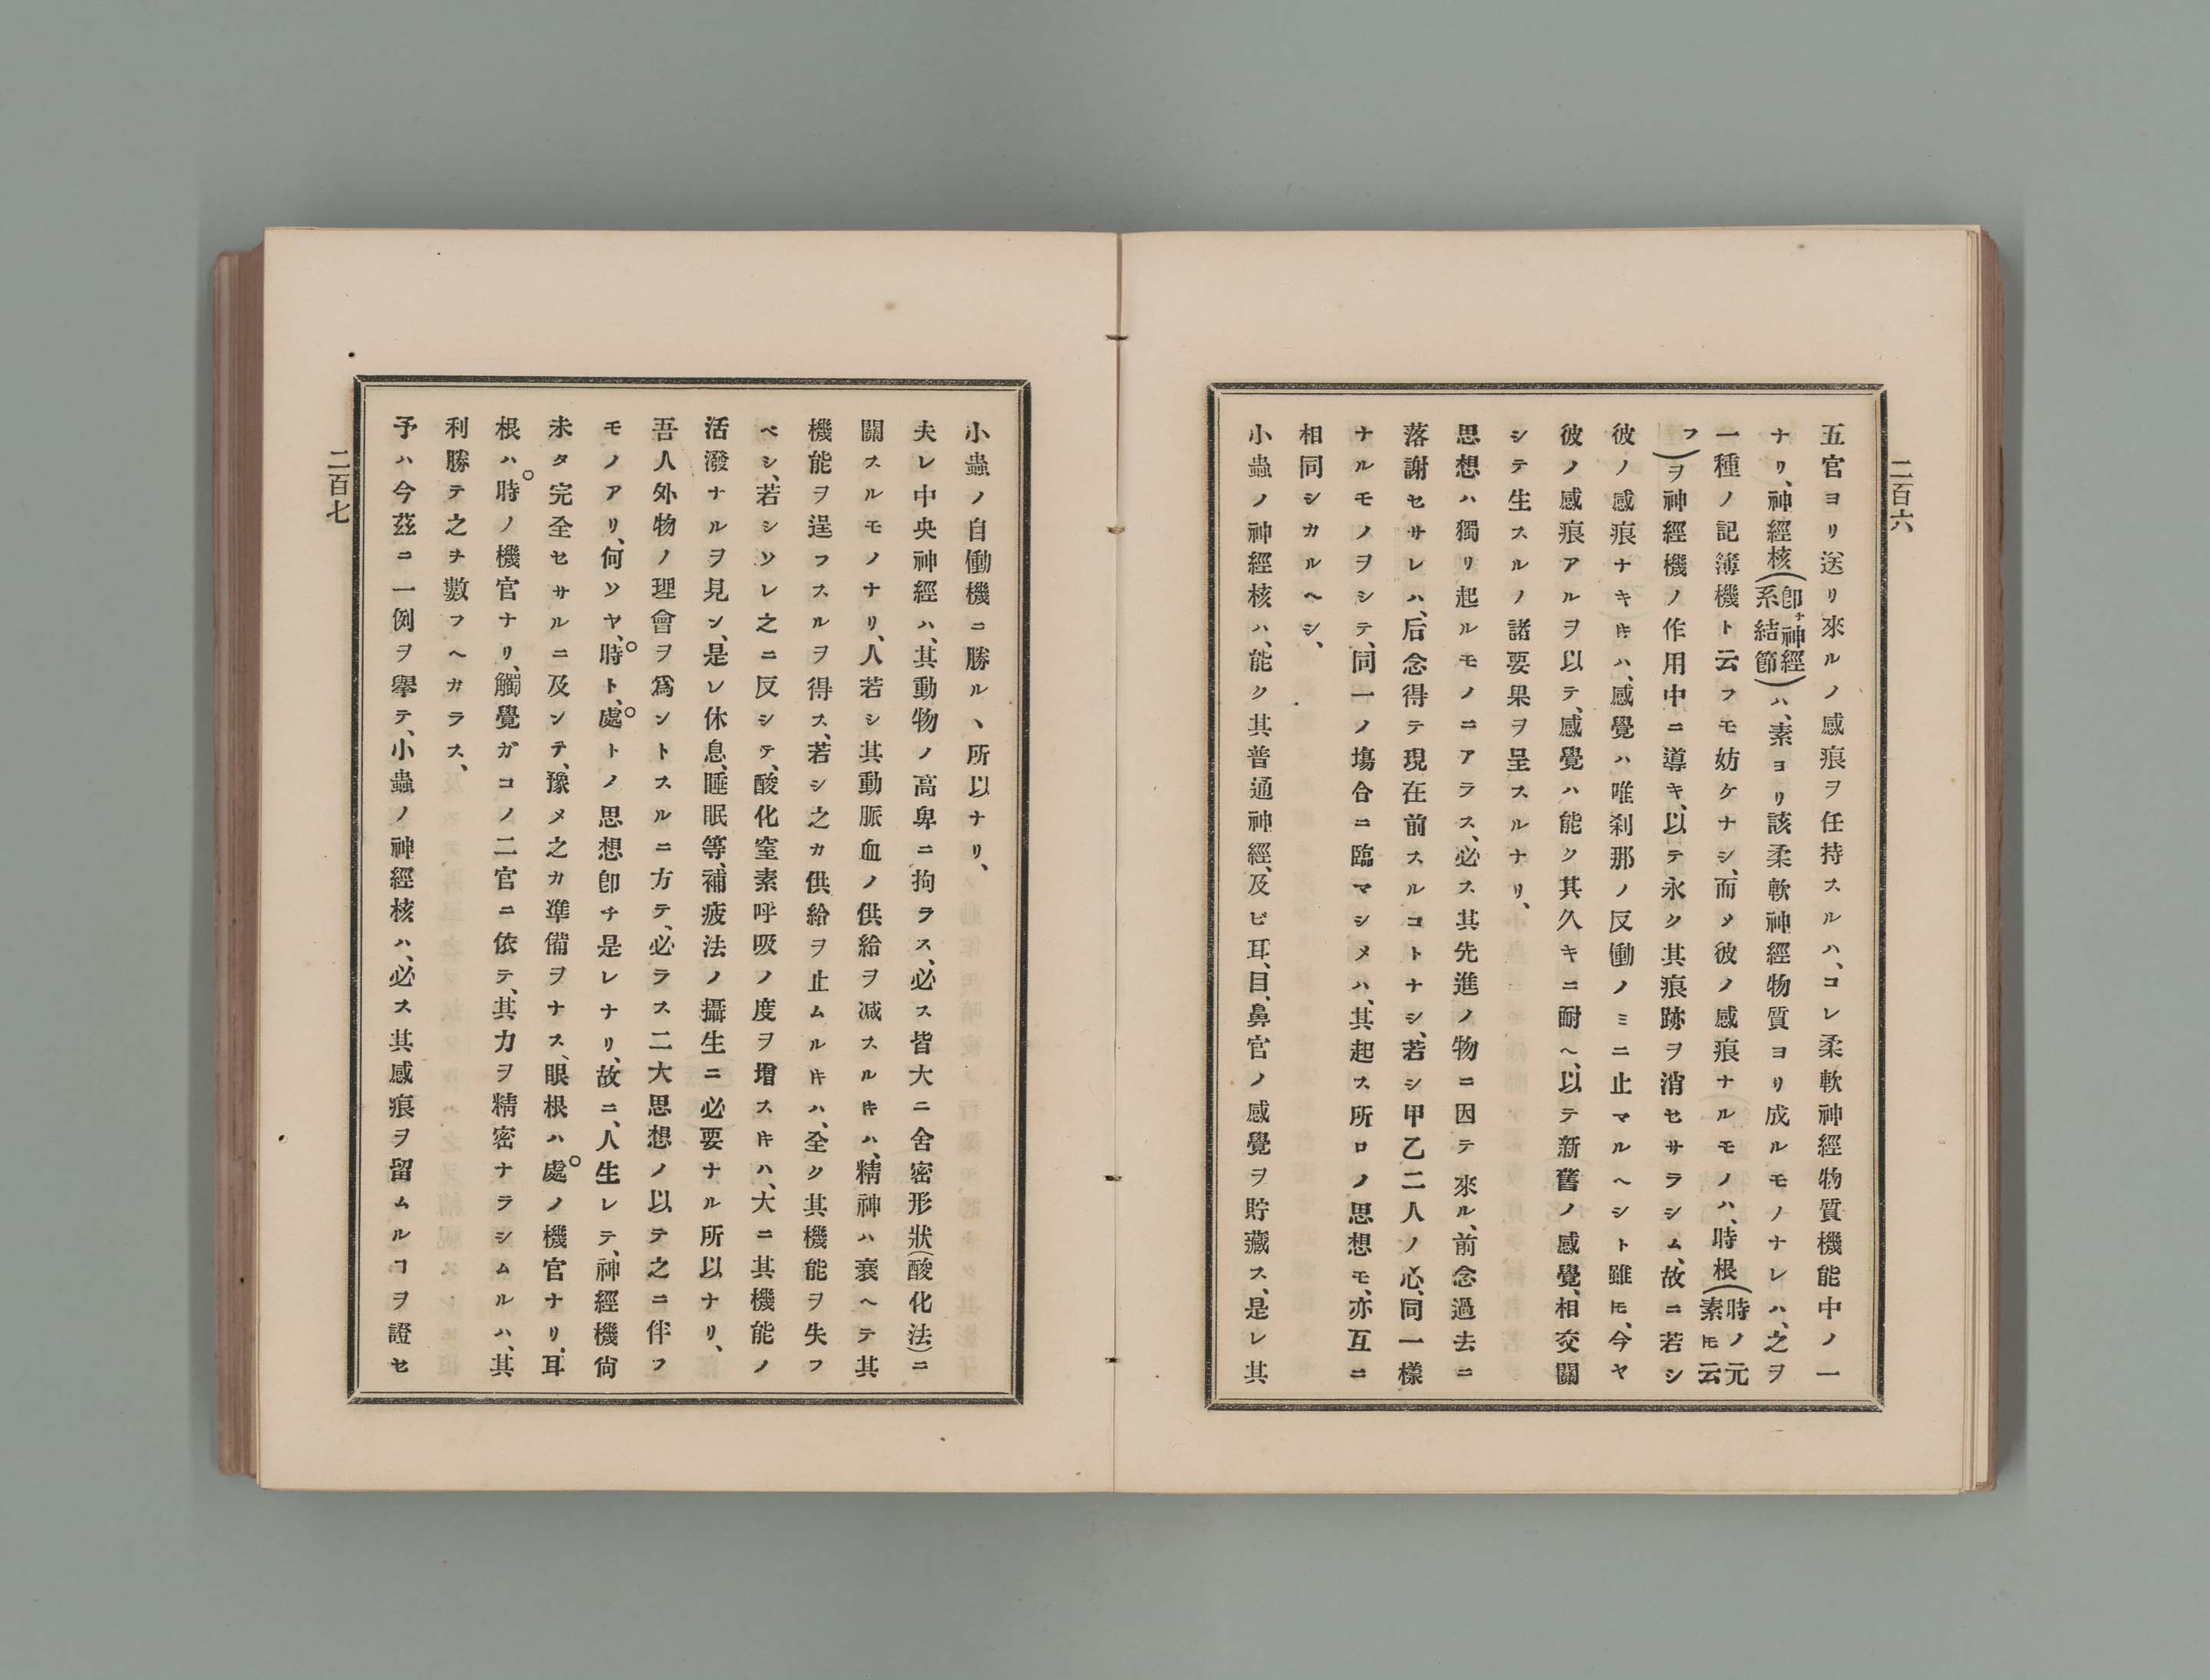 二百六
五官ヨリ送リ來ルノ感痕ヲ任持スルハ、コレ柔軟神經物質機能中ノ一
ナリ、神經核(卽チ神經系結節)ハ、素ヨリ該柔軟神經物質ヨリ成ルモノナレハ、之ヲ
一種ノ記簿機ト云フモ妨ケナシ、而メ彼ノ感痕ナルモノハ、時根(時ノ元素ㇳモ云
フ)ヲ神經機ノ作用中ニ導キ、以テ永ク其痕跡ヲ消セサラシム、故ニ若シ
彼ノ感痕ナキㇳキハ、感覺ハ唯刹那ノ反働ノミニ止マルヘシト雖ㇳモ、今ヤ
彼ノ感痕アルヲ以テ、感覺ハ能ク其久キニ耐ヘ、以テ新舊ノ感覺、相交關
シテ生スルノ諸要果ヲ呈スルナリ、
思想ハ獨リ起ルモノニアラス、必ス其先進ノ物ニ因テ來ル、前念過去ニ
落謝セサレハ、后念得テ現在前スルコトナシ、若シ甲乙二人ノ心、同一樣
ナルモノヲシテ、同一ノ塲合ニ臨マシメハ、其起ス所ロノ思想モ、亦互ニ
相同シカルヘシ、
小蟲ノ神經核ハ、能ク其普通神經、及ビ耳、目、鼻官ノ感覺ヲ貯藏ス、是レ其
小蟲ノ自働機ニ勝ルヽ所以ナリ、
夫レ中央神經ハ、其動物ノ高卑ニ拘ラス、必ス皆大ニ舍密形狀(酸化法)ニ
關スルモノナリ、人若シ其動脈血ノ供給ヲ減スルㇳキハ、精神ハ衰ヘテ其
機能ヲ逞フスルヲ得ス、若シ之カ供給ヲ止ムルㇳキハ、全ク其機能ヲ失フ
ベシ、若シソレ之ニ反シテ、酸化窒素呼吸ノ度ヲ增スㇳキハ、大ニ其機能ノ
活潑ナルヲ見ン、是レ休息、睡眠等、補疲法ノ攝生ニ必要ナル所以ナリ、
吾人外物ノ理會ヲ爲ントスルニ方テ、必ラス二大思想ノ以テ之ニ伴フ
モノアリ、何ソヤ、時ト、處トノ思想卽チ是レナリ、故ニ、人生レテ、神經機尙
未タ完全セサルニ及ンテ、豫メ之カ凖備ヲナス、眼根ハ處ノ機官ナリ、耳
根ハ時ノ機官ナリ、觸覺ガコノ二官ニ依テ、其力ヲ精密ナラシムルハ、其
利勝テ之ヲ數フヘカラス、
予ハ今茲ニ一例ヲ擧テ、小蟲ノ神經核ハ、必ス其感痕ヲ留ムルヿヲ證セ
二百七